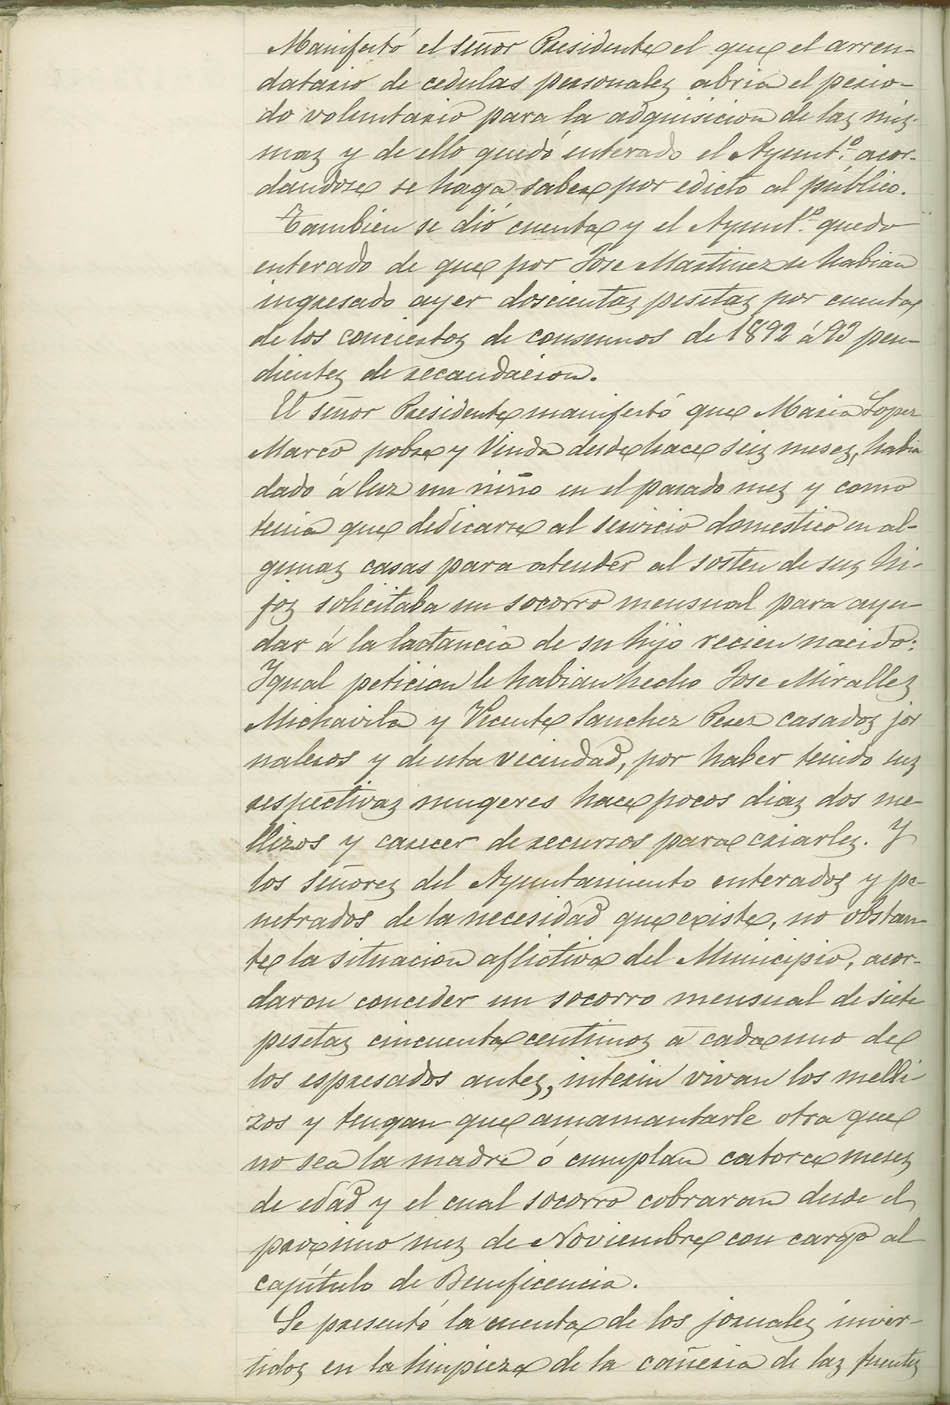 Manifestó el señor Presidente el que el arren-
datario de cedulas personales abria el perio-
do voluntario para la adquisicion de las mis-
mas y de ello quedó enterado el Ayunt.º acor-
dandose se haga saber por edicto al público.
Tambien se dió cuenta y el Ayunt.º quedo
enterado de que por Jose Martinez se habian
ingresado ayer doscientas pesetas por cuenta
de los conciertos de consumos de 1892 á 93 pen-
dientes de recaudacion.
El señor Presidente manifestó que Maria Lopez
Marco pobre y Viuda desde hace seis meses, habia
dado á luz un niño en el pasado mes y como
tenia que dedicarse al servicio domestico en al-
gunas casas para atender al sosten de sus hi-
jos solicitaba un socorro mensual para ayu-
dar á la lactancia de su hijo recien nacido:
Igual peticion le habian hecho Jose Miralles
Michavila y Vicente Sanchez Perez casados jor
naleros y de esta vecindad, por haber tenido sus
respectivas mugeres hace pocos dias dos me-
llizos y carecer de recursos para criarles. Y
los señores del Ayuntamiento enterados y pe-
netrados de la necesidad que existe, no obstan-
te la situacion aflictiva del Municipio, acor-
daron conceder un socorro mensual de siete
pesetas cincuenta centimos a cada uno de
los espresados antes, interin vivan los melli-
zos y tengan que amamantarle otra que
no sea la madre ó cumplan catorce meses
de edad y el cual socorro cobraran desde el
proximo mes de Noviembre con cargo al
capítulo de Beneficencia.
Se presentó la cuenta de los jornales inver-
tidos en la limpieza de la cañeria de las fuentes